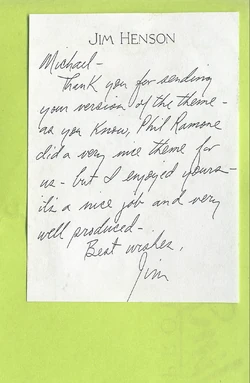 JIM HENSON
Michael-
Thank you for sending
your version of the theme-
as you know, Phil Ramone
did a very nice theme for
us - but I enjoyed yours-
it's a nice job and very
well produced-
Best wishes,
Jim